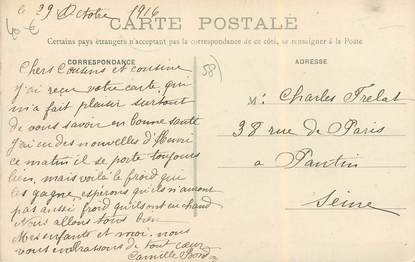 le 29 Octobre 1916
CARTE POSTALE
Certains pays étrangers n'acceptant pas la correspondance de ce côté, se renseigner à la Poste
CORRESPONDANCE
Chers Cousins et cousine
j'ai reçu votre carte, qui
m'a fait plaisir surtout
de vous savoir en bonne santé
J'ai eu des nouvelles d'Henri
ce matin il se porte toujours
bien, mais voilà le froid qui
les gagne, espérons qu'ils n'auront
pas aussi froid qu'ils ont eu chaud
Nous allons tous bien
Mes enfants et moi, nous
vous embrassons de tout cœur
Camille
58
ADRESSE
Mr Charles Trelat
38 rue de Paris
a Pantin
Seine